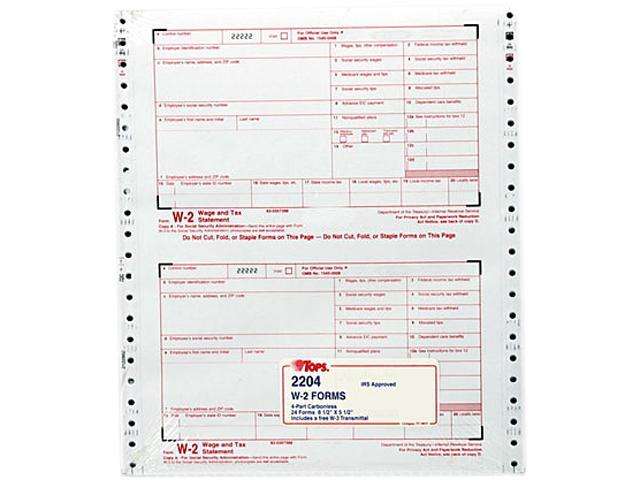 a Control number
22222
Void
For Official Use Only ▶
OMB No. 1545-0008
b Employer identification number
1 Wages, tips, other compensation
2 Federal income tax withheld
c Employer's name, address, and ZIP code
3 Social security wages
4 Social security tax withheld
5 Medicare wages and tips
6 Medicare tax withheld
7 Social security tips
8 Allocated tips
d Employee's social security number
9 Advance EIC payment
10 Dependent care benefits
e Employee's first name and initial
Last name
11 Nonqualified plans
12a See instructions for box 12
13
12b
14 Other
12c
12d
f Employee's address and ZIP code
15 State Employer's state ID number
16 State wages, tips, etc.
17 State income tax
18 Local wages, tips, etc.
19 Local income tax
20 Locality name
Form W-2 Wage and Tax Statement
Department of the Treasury–Internal Revenue Service
For Privacy Act and Paperwork Reduction
Act Notice, see back of copy D.
Copy A - For Social Security Administration—Send this entire page with Form
W-3 to the Social Security Administration; photocopies are not acceptable.
Do Not Cut, Fold, or Staple Forms on This Page — Do Not Cut, Fold, or Staple Forms on This Page
a Control number
22222
Void
For Official Use Only ▶
OMB No. 1545-0008
1 Wages, tips, other compensation
2 Federal income tax withheld
c Employer's name, address, and ZIP code
3 Social security wages
4 Social security tax withheld
5 Medicare wages and tips
6 Medicare tax withheld
7 Social security tips
8 Allocated tips
d Employee's social security number
9 Advance EIC payment
10 Dependent care benefits
e Employee's first name and initial
Last name
11 Nonqualified plans
12a See instructions for box 12
TOPS.
2204
IRS Approved
W-2 FORMS
4-Part Carbonless
24 Forms 8 1/2" X 5 1/2"
Includes a free W-3 Transmittal
f Employee's address and ZIP code
Form W-2 Wage and Tax Statement
Department of the Treasury–Internal Revenue Service
For Privacy Act and Paperwork Reduction
Act Notice, see back of copy D.
Copy A - For Social Security Administration—Send this entire page with Form
W-3 to the Social Security Administration; photocopies are not acceptable.